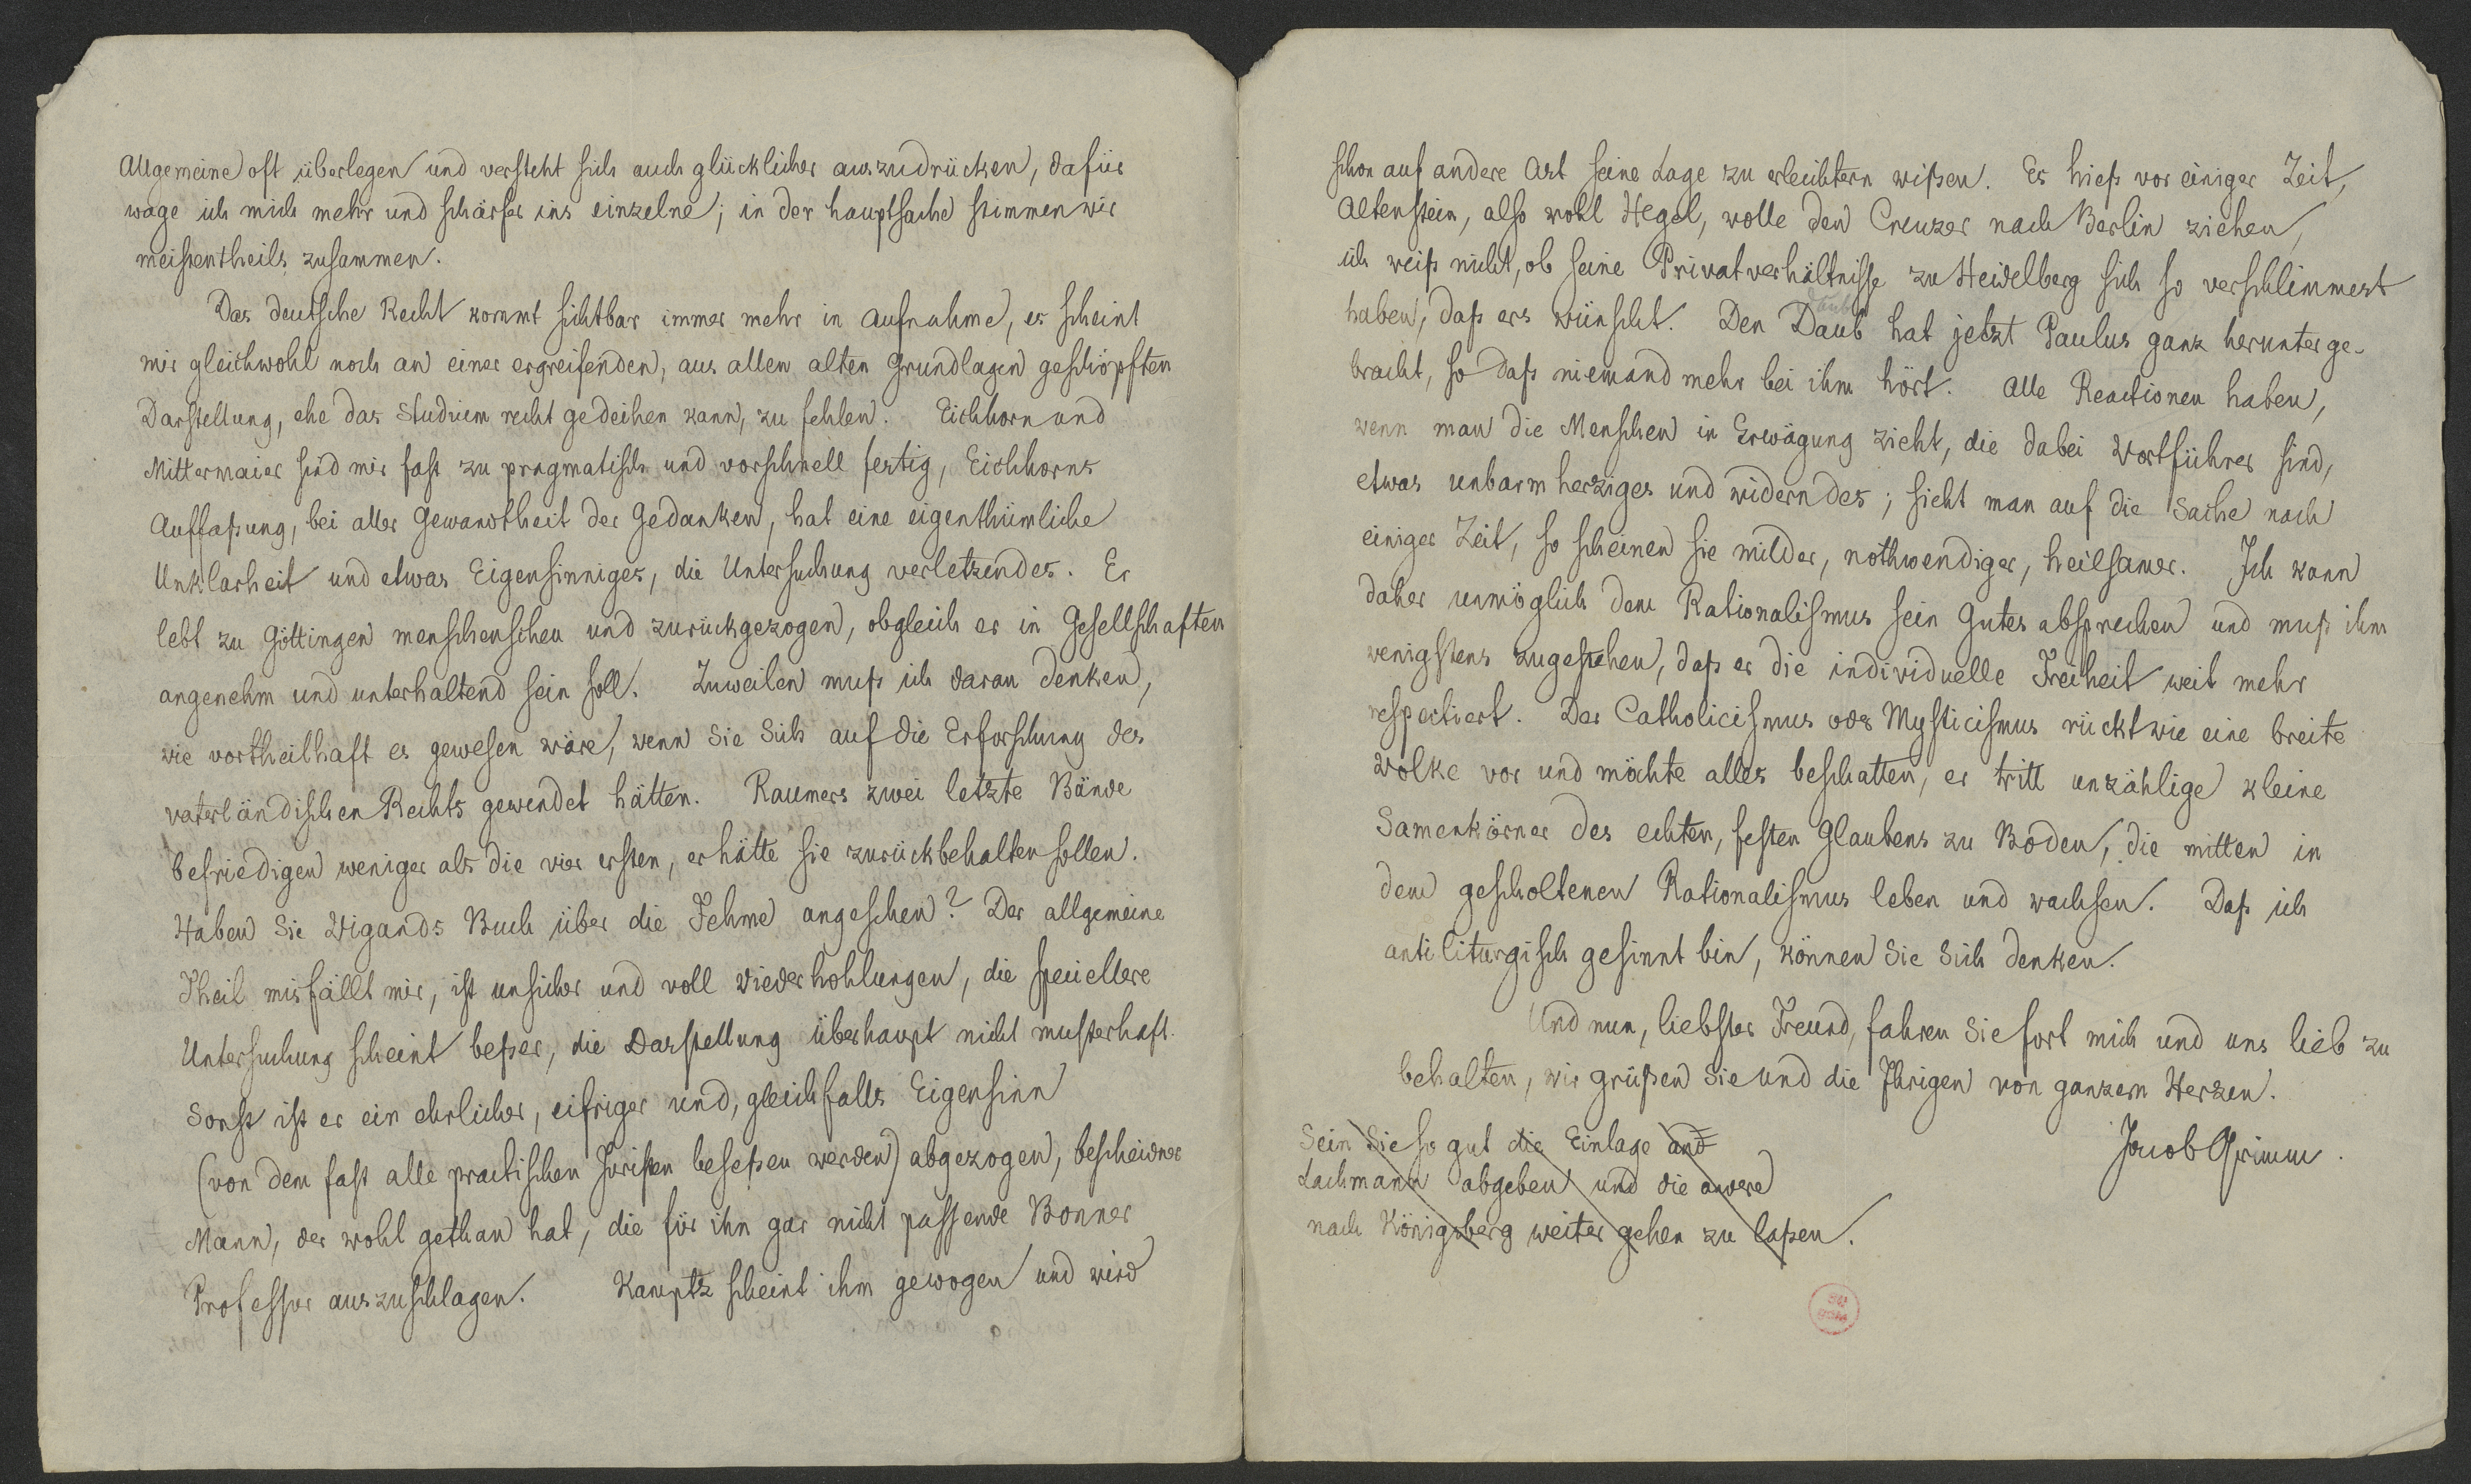 Allgemeine oft überlegen und versteht sich auch glücklicher auszudrücken, dafür
wage ich mich mehr und schärfer ins einzelne; in der hauptsache stimmen wir
meistentheils zusammen.
Das deutsche Recht kommt sichtbar immer mehr in Aufnahme, es scheint
mir gleichwohl noch an einer ergreifenden, aus allen alten Grundlagen geschöpften
Darstellung, ehe das Studium recht gedeihen kann, zu fehlen. Eichhorn und
Mittermaier sind mir fast zu pragmatisch und vorschnell fertig, Eichhorns
Auffaßung, bei aller Gewandtheit der Gedanken, hat eine eigenthümliche
Unklarheit und etwas Eigensinniges, die Untersuchung verletzendes. Er
lebt zu Göttingen menschenscheu und zurückgezogen, obgleich er in Gesellschaften
angenehm und unterhaltend sein soll. Zuweilen muß ich daran denken,
wie vortheilhaft es gewesen wäre, wenn Sie Sich auf die Erforschung des
vaterländischen Rechts gewendet hätten. Raumers zwei letzte Bände
befriedigen weniger als die vier ersten, er hätte sie zurückbehalten sollen.
Haben Sie Wigands Buch über die Fehme angesehen? Der allgemeine
Theil misfällt mir, ist unsicher und voll Wiederhohlungen, die speciellere
Untersuchung scheint beßer, die Darstellung überhaupt nicht musterhaft.
Sonst ist er ein ehrlicher, eifriger und, gleichfalls Eigensinn
(von dem fast alle practischen Juristen beseßen werden) abgezogen, bescheidner
Mann, der wohl gethan hat, die für ihn gar nicht passende Bonner
Professur auszuschlagen. Kamptz scheint ihm gewogen und wird
schon auf andere Art seine Lage zu erleichtern wißen. Es hieß vor einiger Zeit,
Altenstein, also wohl Hegel, wolle den Creuzer nach Berlin ziehen,
ich weiß nicht, ob seine Privatverhältnisse zu Heidelberg sich so verschlimmert
haben, daß ers wünscht. Den Daub hat jetzt Paulus ganz herunterge-
bracht, so daß niemand mehr bei ihm hört. Alle Reactionen haben,
wenn man die Menschen in Erwägung zieht, die dabei Wortführer sind,
etwas unbarmherziges und widerndes; sieht man auf die Sache nach
einiger Zeit, so scheinen sie milder, nothwendiger, heilsamer. Ich kann
daher unmöglich dem Rationalismus sein Gutes absprechen und muß ihm
wenigstens zugestehen, daß er die individuelle Freiheit weit mehr
respectiert. Der Catholicismus oder Mysticismus rückt wie eine breite
Wolke vor und möchte alles beschatten, er tritt unzählige kleine
Samenkörner des echten, festen Glaubens zu Boden, die mitten in
dem gescholtenen Rationalismus leben und wachsen. Daß ich
antiliturgisch gesinnt bin, können Sie Sich denken.
Und nun, liebster Freund, fahren Sie fort mich und uns lieb zu
behalten, wir grüßen Sie und die Ihrigen von ganzem Herzen.
Jacob Grimm.
Sein Sie so gut die Einlage and
Lachmann abgeben und die andere
nach Königsberg weiter gehen zu laßen.